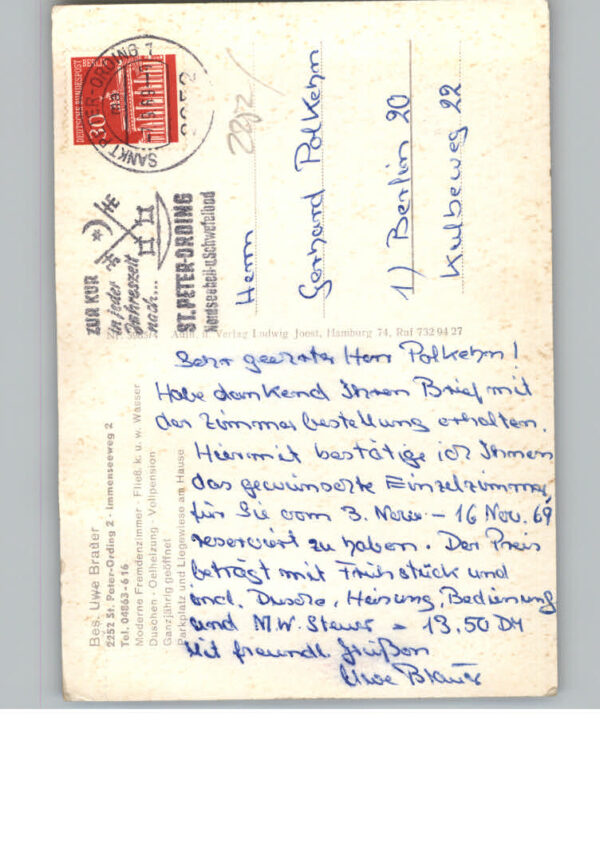 DEUTSCHE BUNDESPOST BERLIN
30
SANKT PETER-ORDING 1
2252
ZUR KUR
in jeder
Jahreszeit
nach...
ST. PETER-ORDING
Nordseeheil-u. Schwefelbad
Herrn
Gerhard Polkehn
1) Berlin 20
Kulbeweg 22
Verlag Ludwig Joost, Hamburg 74, Ruf 732 94 27
Bes. Uwe Brauer
2252 St. Peter-Ording 2 · Immenseeweg 2
Tel. 04863-616
Moderne Fremdenzimmer · Fließ. k. u. w. Wasser
Duschen · Oelheizung · Vollpension
Ganzjährig geöffnet
Parkplatz und Liegewiese am Hause
Sehr geehrter Herr Polkehn!
Habe dankend Ihren Brief mit
der Zimmerbestellung erhalten.
Hiermit bestätige ich Ihnen
das gewünschte Einzelzimmer
für Sie vom 3. Nov. – 16 Nov. 69
reserviert zu haben. Der Preis
beträgt mit Frühstück und
incl. Dusche, Heizung, Bedienung
und M.W. Steuer = 13.50 DM
Mit freundl. Grüßen
Uwe Brauer